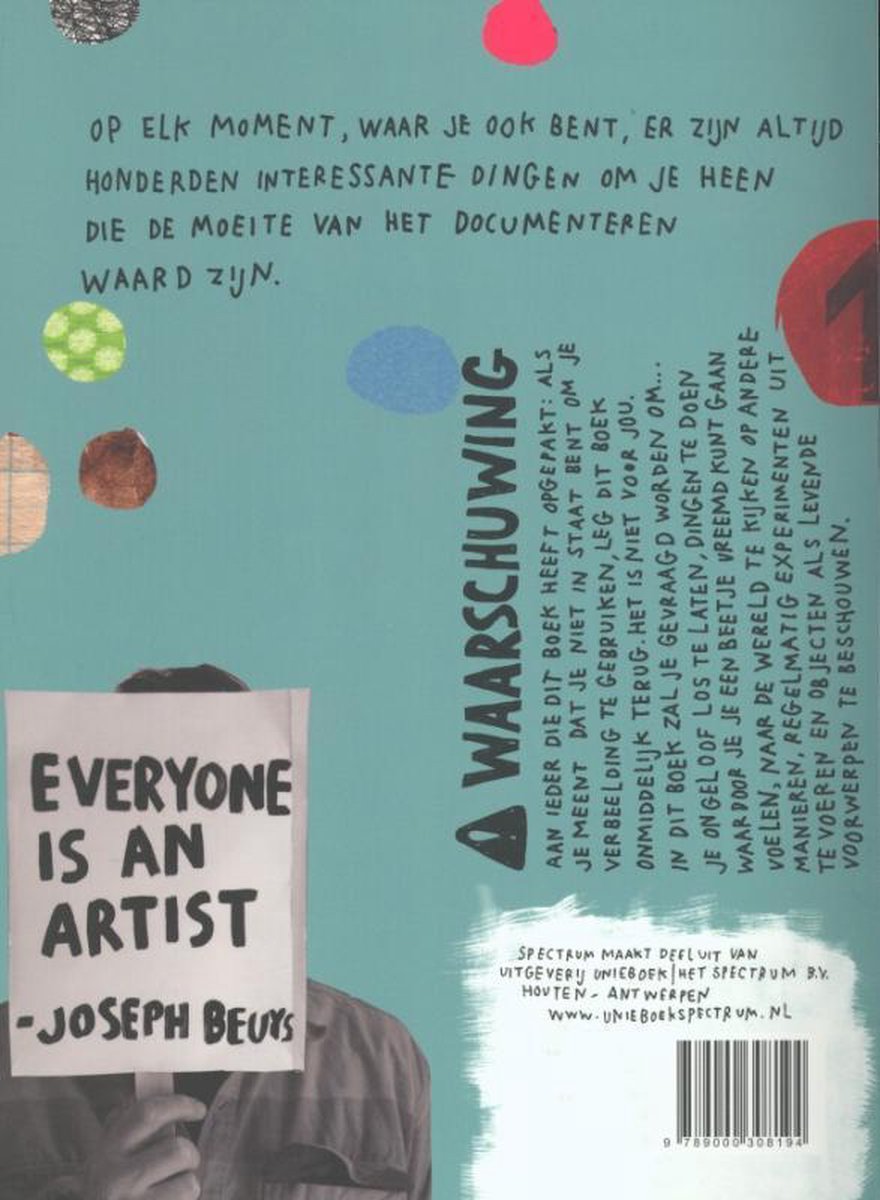 OP ELK MOMENT, WAAR JE OOK BENT, ER ZIJN ALTIJD
HONDERDEN INTERESSANTE DINGEN OM JE HEEN
DIE DE MOEITE VAN HET DOCUMENTEREN
WAARD ZIJN.
1
WAARSCHUWING
AAN IEDER DIE DIT BOEK HEEFT OPGEPAKT: ALS
JE MEENT DAT JE NIET IN STAAT BENT OM JE
VERBEELDING TE GEBRUIKEN, LEG DIT BOEK
ONMIDDELIJK TERUG. HET IS NIET VOOR JOU.
IN DIT BOEK ZAL JE GEVRAAGD WORDEN OM...
JE ONGELOOF LOS TE LATEN, DINGEN TE DOEN
WAARDOOR JE JE EEN BEETJE VREEMD KUNT GAAN
VOELEN, NAAR DE WERELD TE KIJKEN OP ANDERE
MANIEREN, REGELMATIG EXPERIMENTEN UIT
TE VOEREN EN OBJECTEN ALS LEVENDE
VOORWERPEN TE BESCHOUWEN.
EVERYONE
IS AN
ARTIST
-JOSEPH BEUYS
SPECTRUM MAAKT DEEL UIT VAN
UITGEVERIJ UNIEBOEK|HET SPECTRUM B.V.
HOUTEN - ANTWERPEN
WWW.UNIEBOEKSPECTRUM.NL
9 789000 308194